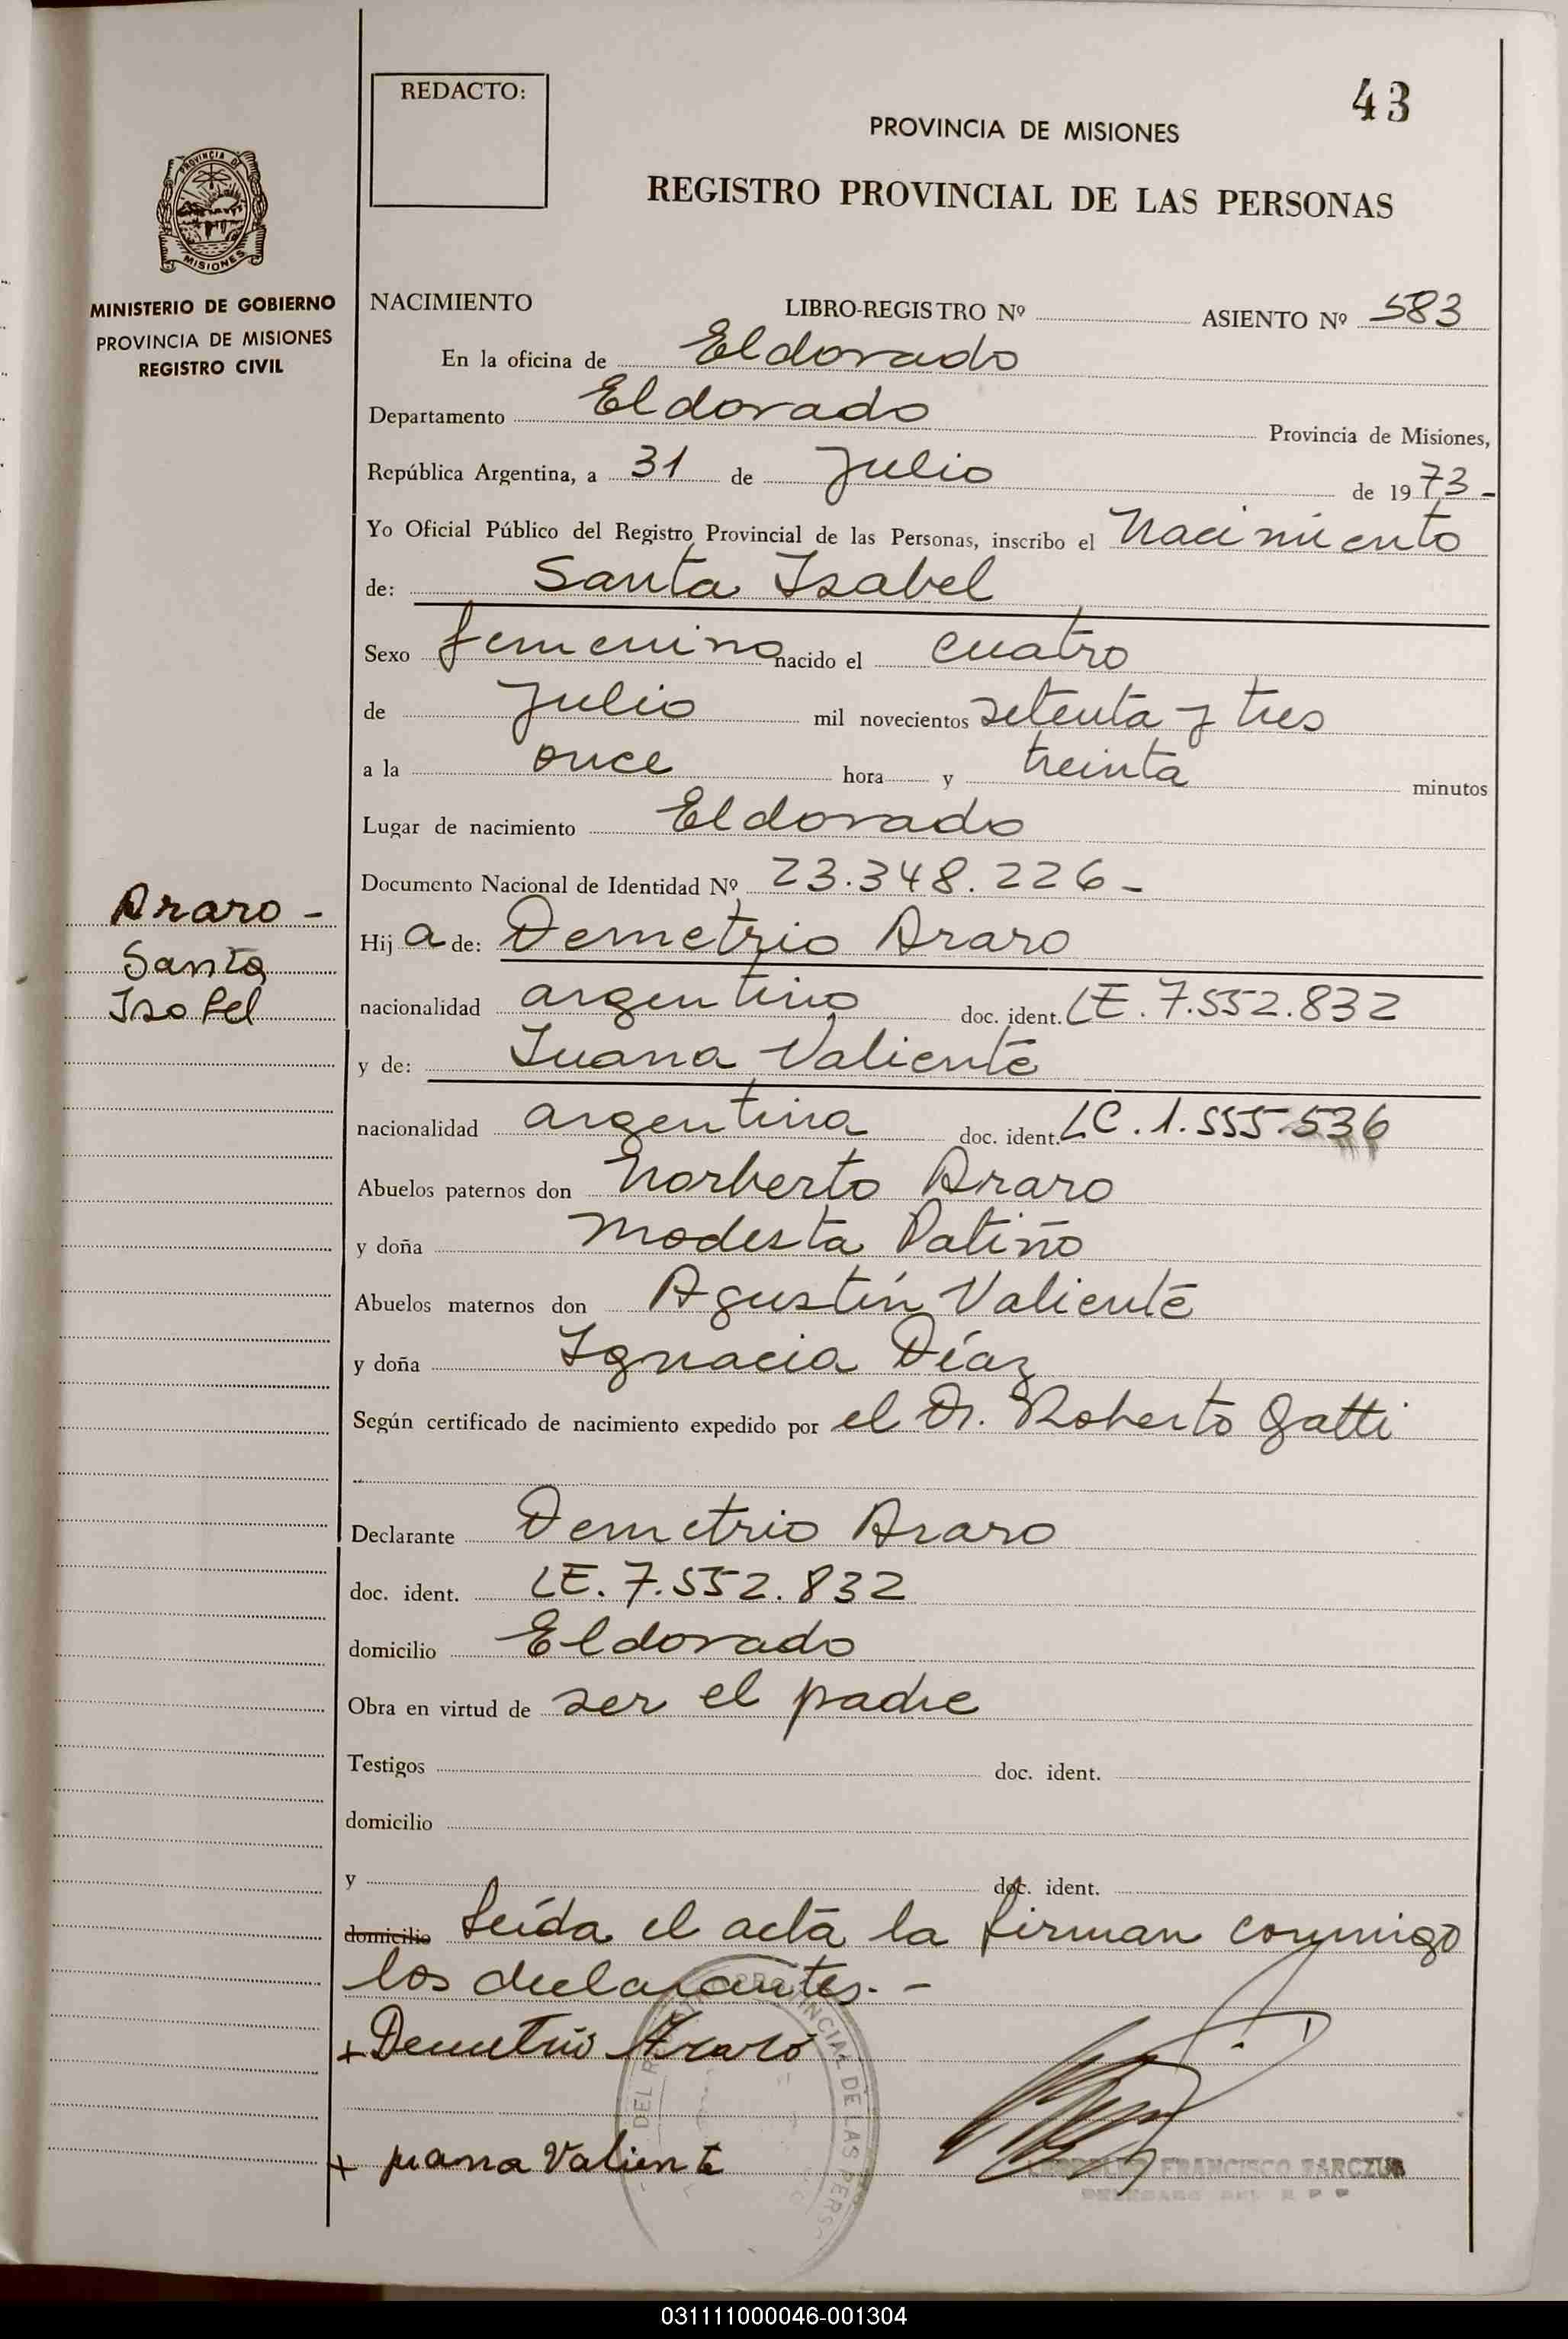 REDACTO:
43
PROVINCIA DE MISIONES
REGISTRO PROVINCIAL DE LAS PERSONAS
PROVINCIA DE
MISIONES
MINISTERIO DE GOBIERNO
PROVINCIA DE MISIONES
REGISTRO CIVIL
NACIMIENTO LIBRO-REGISTRO Nº ASIENTO Nº 583
En la oficina de Eldorado
Departamento Eldorado Provincia de Misiones,
República Argentina, a 31 de Julio de 1973-
Yo Oficial Público del Registro Provincial de las Personas, inscribo el Nacimiento
de: Santa Isabel
Sexo femenino nacido el cuatro
de Julio mil novecientos setenta y tres
a la once hora y treinta minutos
Lugar de nacimiento Eldorado
Documento Nacional de Identidad Nº 23.348.226-
Araro-
Santa
Isabel
Hija de: Demetrio Araro
nacionalidad argentino doc. ident. LE. 7.552.832
y de: Juana Valiente
nacionalidad argentina doc. ident. LC. 1.555.536
Abuelos paternos don Norberto Araro
y doña Modesta Patiño
Abuelos maternos don Agustín Valiente
y doña Ignacia Díaz
Según certificado de nacimiento expedido por el Dr. Roberto Gatti
Declarante Demetrio Araro
doc. ident. LE. 7.552.832
domicilio Eldorado
Obra en virtud de ser el padre
Testigos doc. ident.
domicilio
y doc. ident.
domicilio Leída el acta la firman conmigo
los declarantes.-
+ Demetrio Araro
+ juana Valiente
DEL PROVINCIAL DE LAS PERSO
FRANCISCO
031111000046-001304